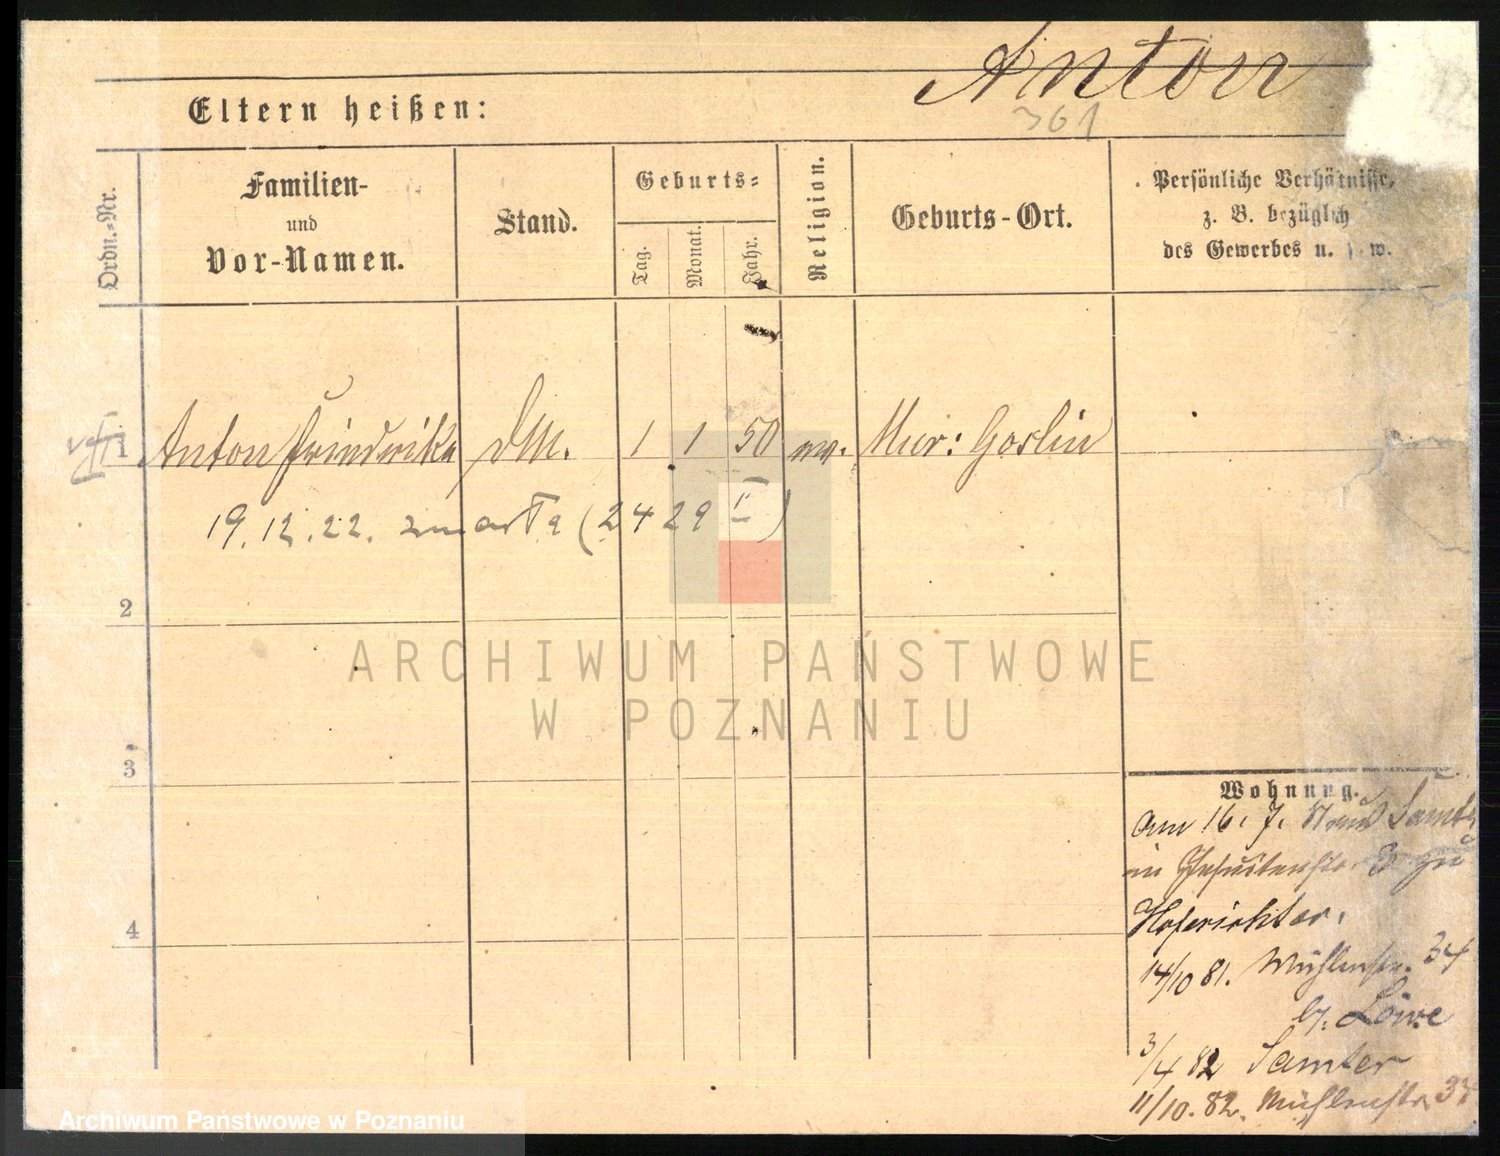 Anton
361
Eltern heißen:
Ordn.-Nr.
Familien-
und
Vor-Namen.
Stand.
Geburts-
Tag.
Monat.
Jahr.
Religion.
Geburts-Ort.
Persönliche Verhätnisse,
z. B. bezüglich
des Gewerbes u. s. w.
1 Anton Friederike DM. 1 1 50 ev. Mur: Goslin
19.12.22. zmarła (2429 II)
2
3
4
Wohnung.
am 16. 7. aus Samter
in Jesuitenstr. 3 zu
Hoferichter.
14/10 81. Mühlenstr. 34
b. Löwe
3/4 82 Samter
11/10. 82. Mühlenstr. 34
ARCHIWUM PAŃSTWOWE
W POZNANIU
Archiwum Państwowe w Poznaniu